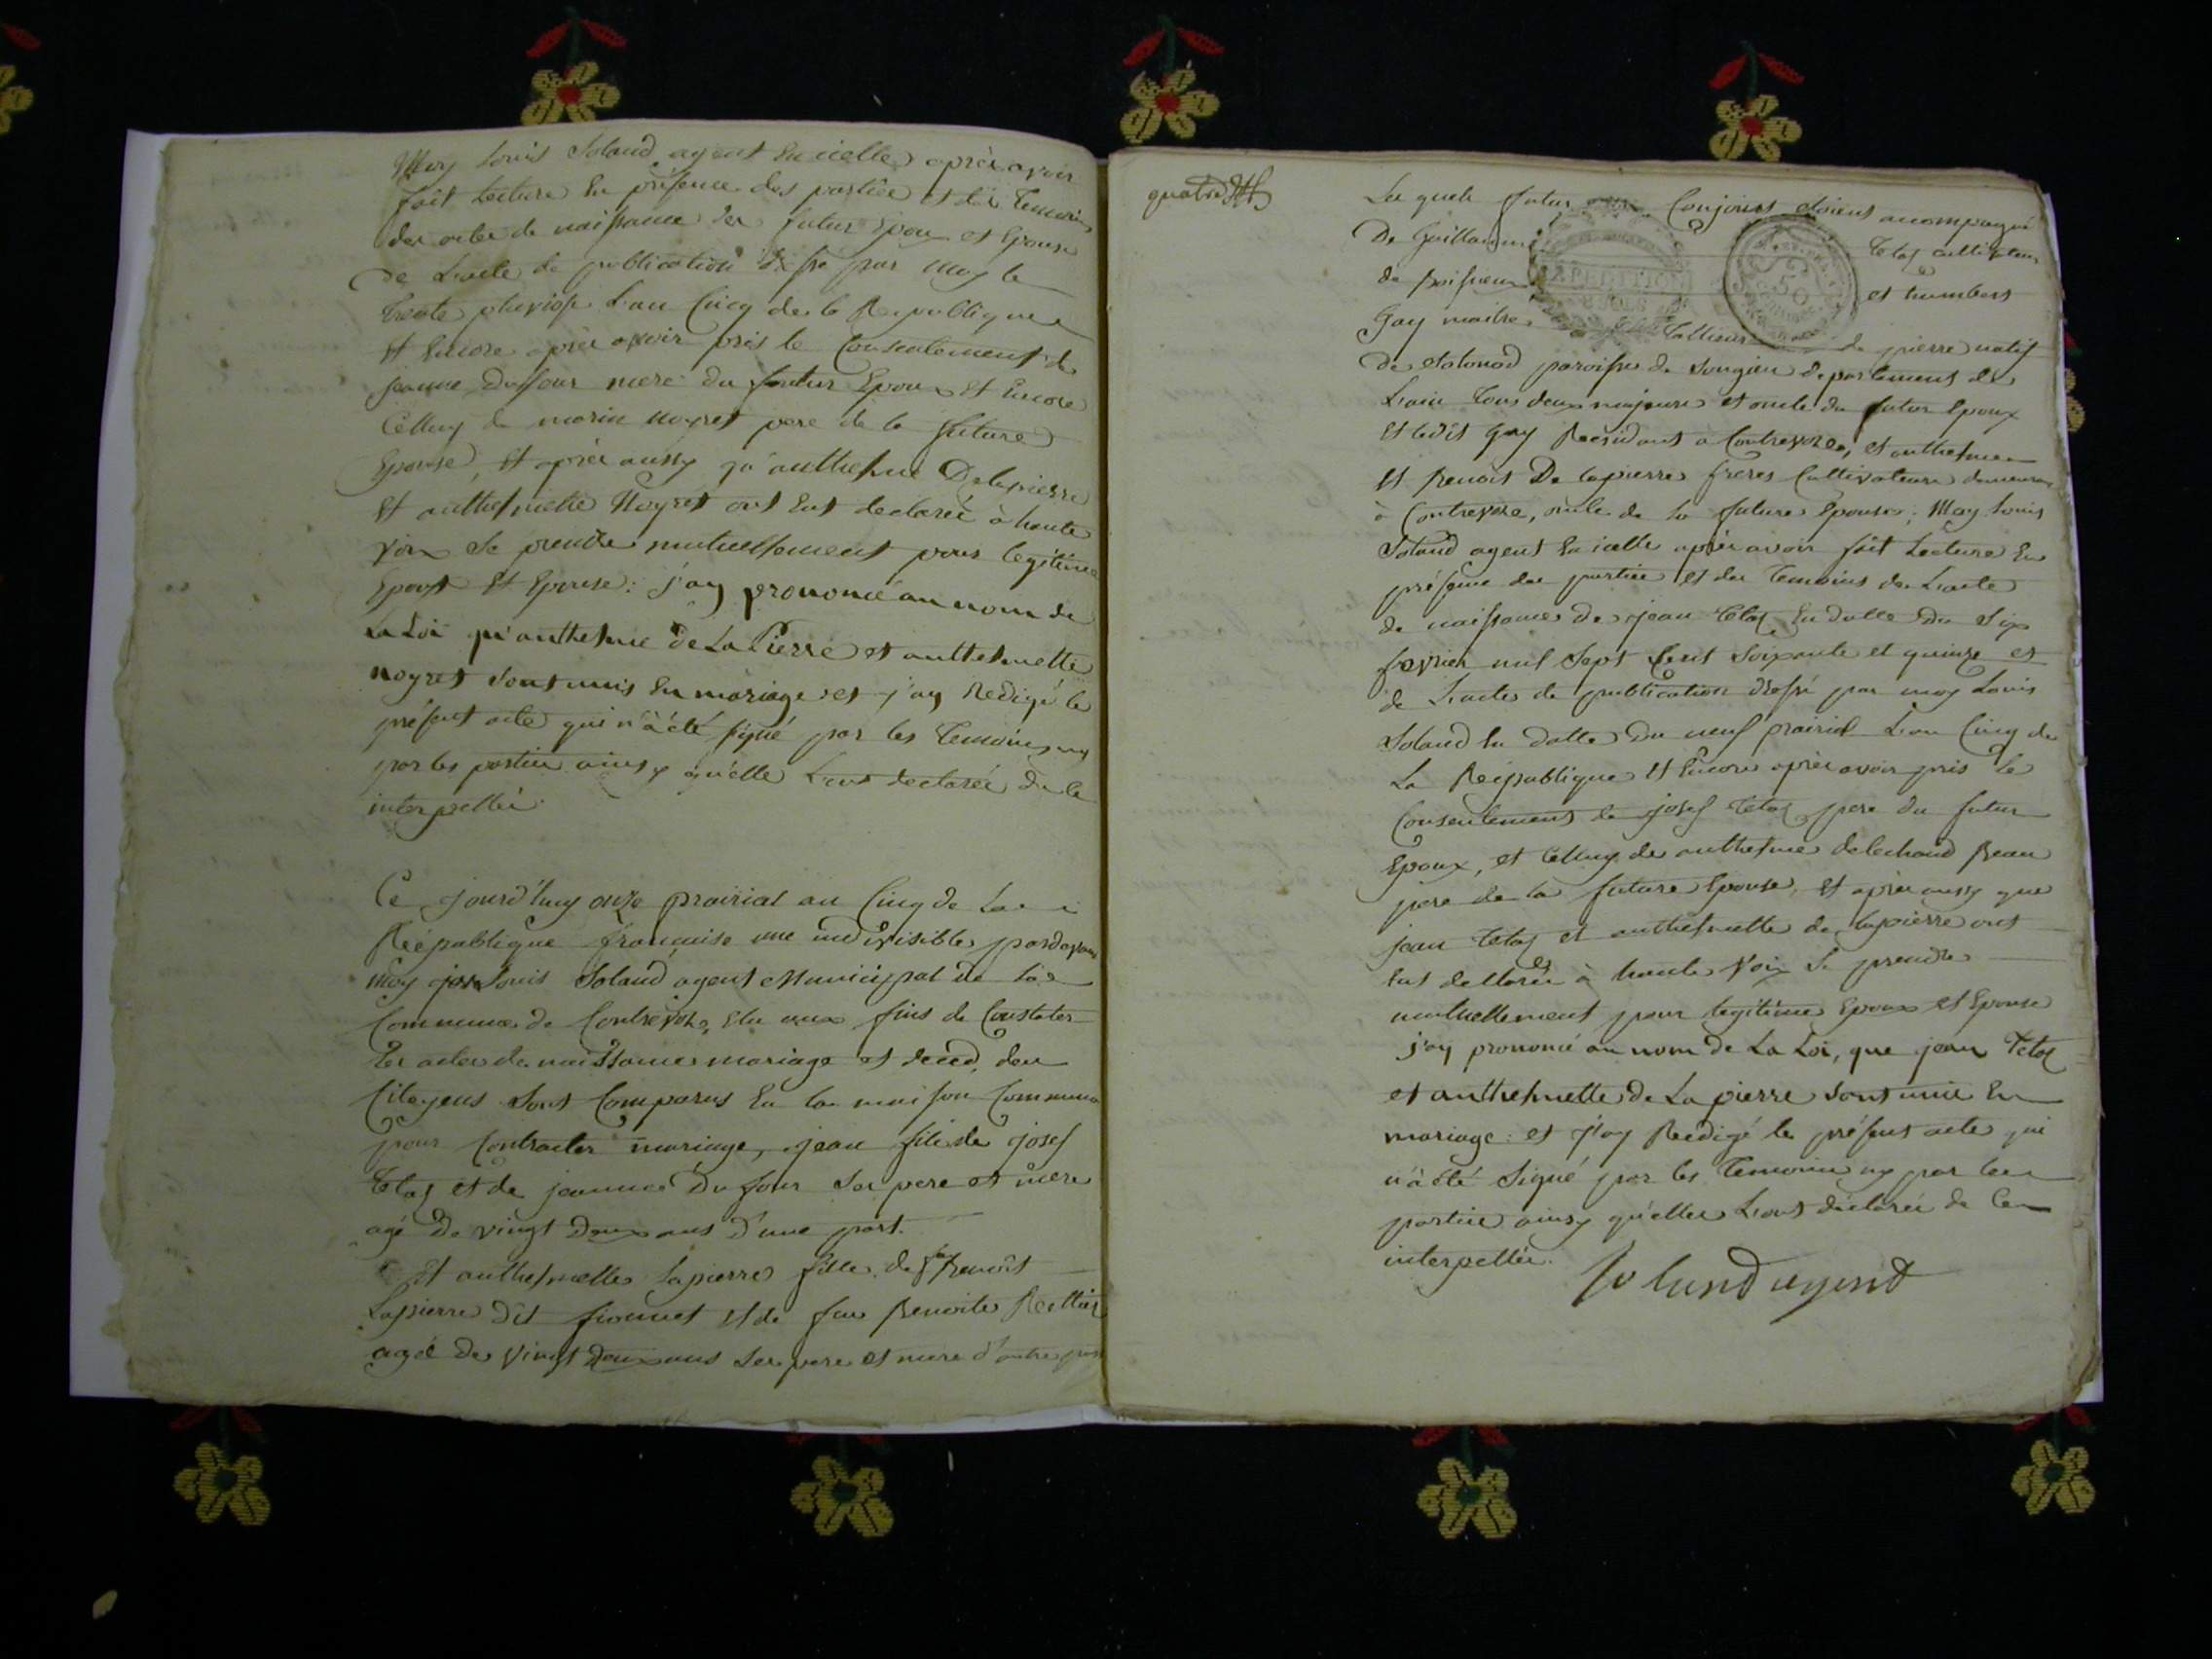 Moy Louis Soland agent en icelle après avoir
fait lecture en présence des parties et des Temoins
des actes de naissance des futur Epoux et Epouse
de L'acte de publication dressé par moy le
trente pluviose L'an Cinq de la Republique
et Encore après avoir pris le Consentement de
jeanne Dufour mere du futur Epoux et Encore
Celluy de marin noyret pere de la future
Epouse, Et après aussy qu'anthelme Delapierre
Et anthelmette Noyret ont Eut declaréé à haute
voix se prendre mutuellement pour legitime
Epoux Et Epouse: j'ay prononcé au nom de
La Loi qu'anthelme De La Pierre et anthelmette
noyret sont unis En mariage et j'ay Redigé le
présent acte qui n'à été signé par les Temoins ny
par les parties ainsy qu'elle L'ont declaréé de ce
interpellée.
Ce jourd'huy onze prairial an Cinq de La
Réépublique française une indivisible pardevant
Moy Louis Soland agent Municipal de la
Commune de Contrevoz, Elu aux fins de Constater
les actes de naissance mariage et déced, des
Citoyens Sont Comparus En la maison Commune
pour Contracter mariage, jean fils de josef
Tetaz et de jeanne Dufour Ses pere et mere
agé De vingt Deux ans D'une part.
Et anthelmette Lapierre fille de feu Benoit
Lapierre Dit fionnet Et de feue Benoite
agéé De vingt Deux ans Ses pere et mere d'autre part
quatre
Les quels futur Conjoints étoient accompagné
De Guillaume Tetaz Cultivateur
de et humbert
Gay maitre Tallieur de pierre natif
De paroisse de Songieu departement de
L'ain Tous deux majeurs et oncle du futur Epoux
Et ledit Gay Résidant à Contrevoz, et anthelme
Et Benoit De lapierre freres Cultivateurs demeurant
à Contrevoz, oncle de la future Epouse; Moy Louis
Soland agent En icelle après avoir fait Lecture En
présence des parties et des Temoins de L'acte
de naissance de jean Tetaz En datte Du Six
fevrier mil Sept Cent Soixante et quinze et
de L'acte de publication dressé par moy Louis
Soland En datte Du neuf prairial L'an Cinq de
La Réépublique Et Encore après avoir pris le
Consentement de josef Tetaz pere du futur
Epoux, et Celluy de anthelme delechaud Beau
pere de la future Epouse, Et après aussy que
jean Tetaz et anthelmette de lapierre ont
Eut declaréés à haute Voix Se prendre
mutuellement pour legitime Epoux et Epouse
j'ay prononcé au nom de La Loi, que jean Tetaz
et anthelmette de La pierre sont unis En
mariage: et j'ay Réédigé le présent acte qui
n'à été Signé par les Temoins ny par les
parties ainsy qu'elles L'ont déclaréé de Ce
interpellée.
Solund agent